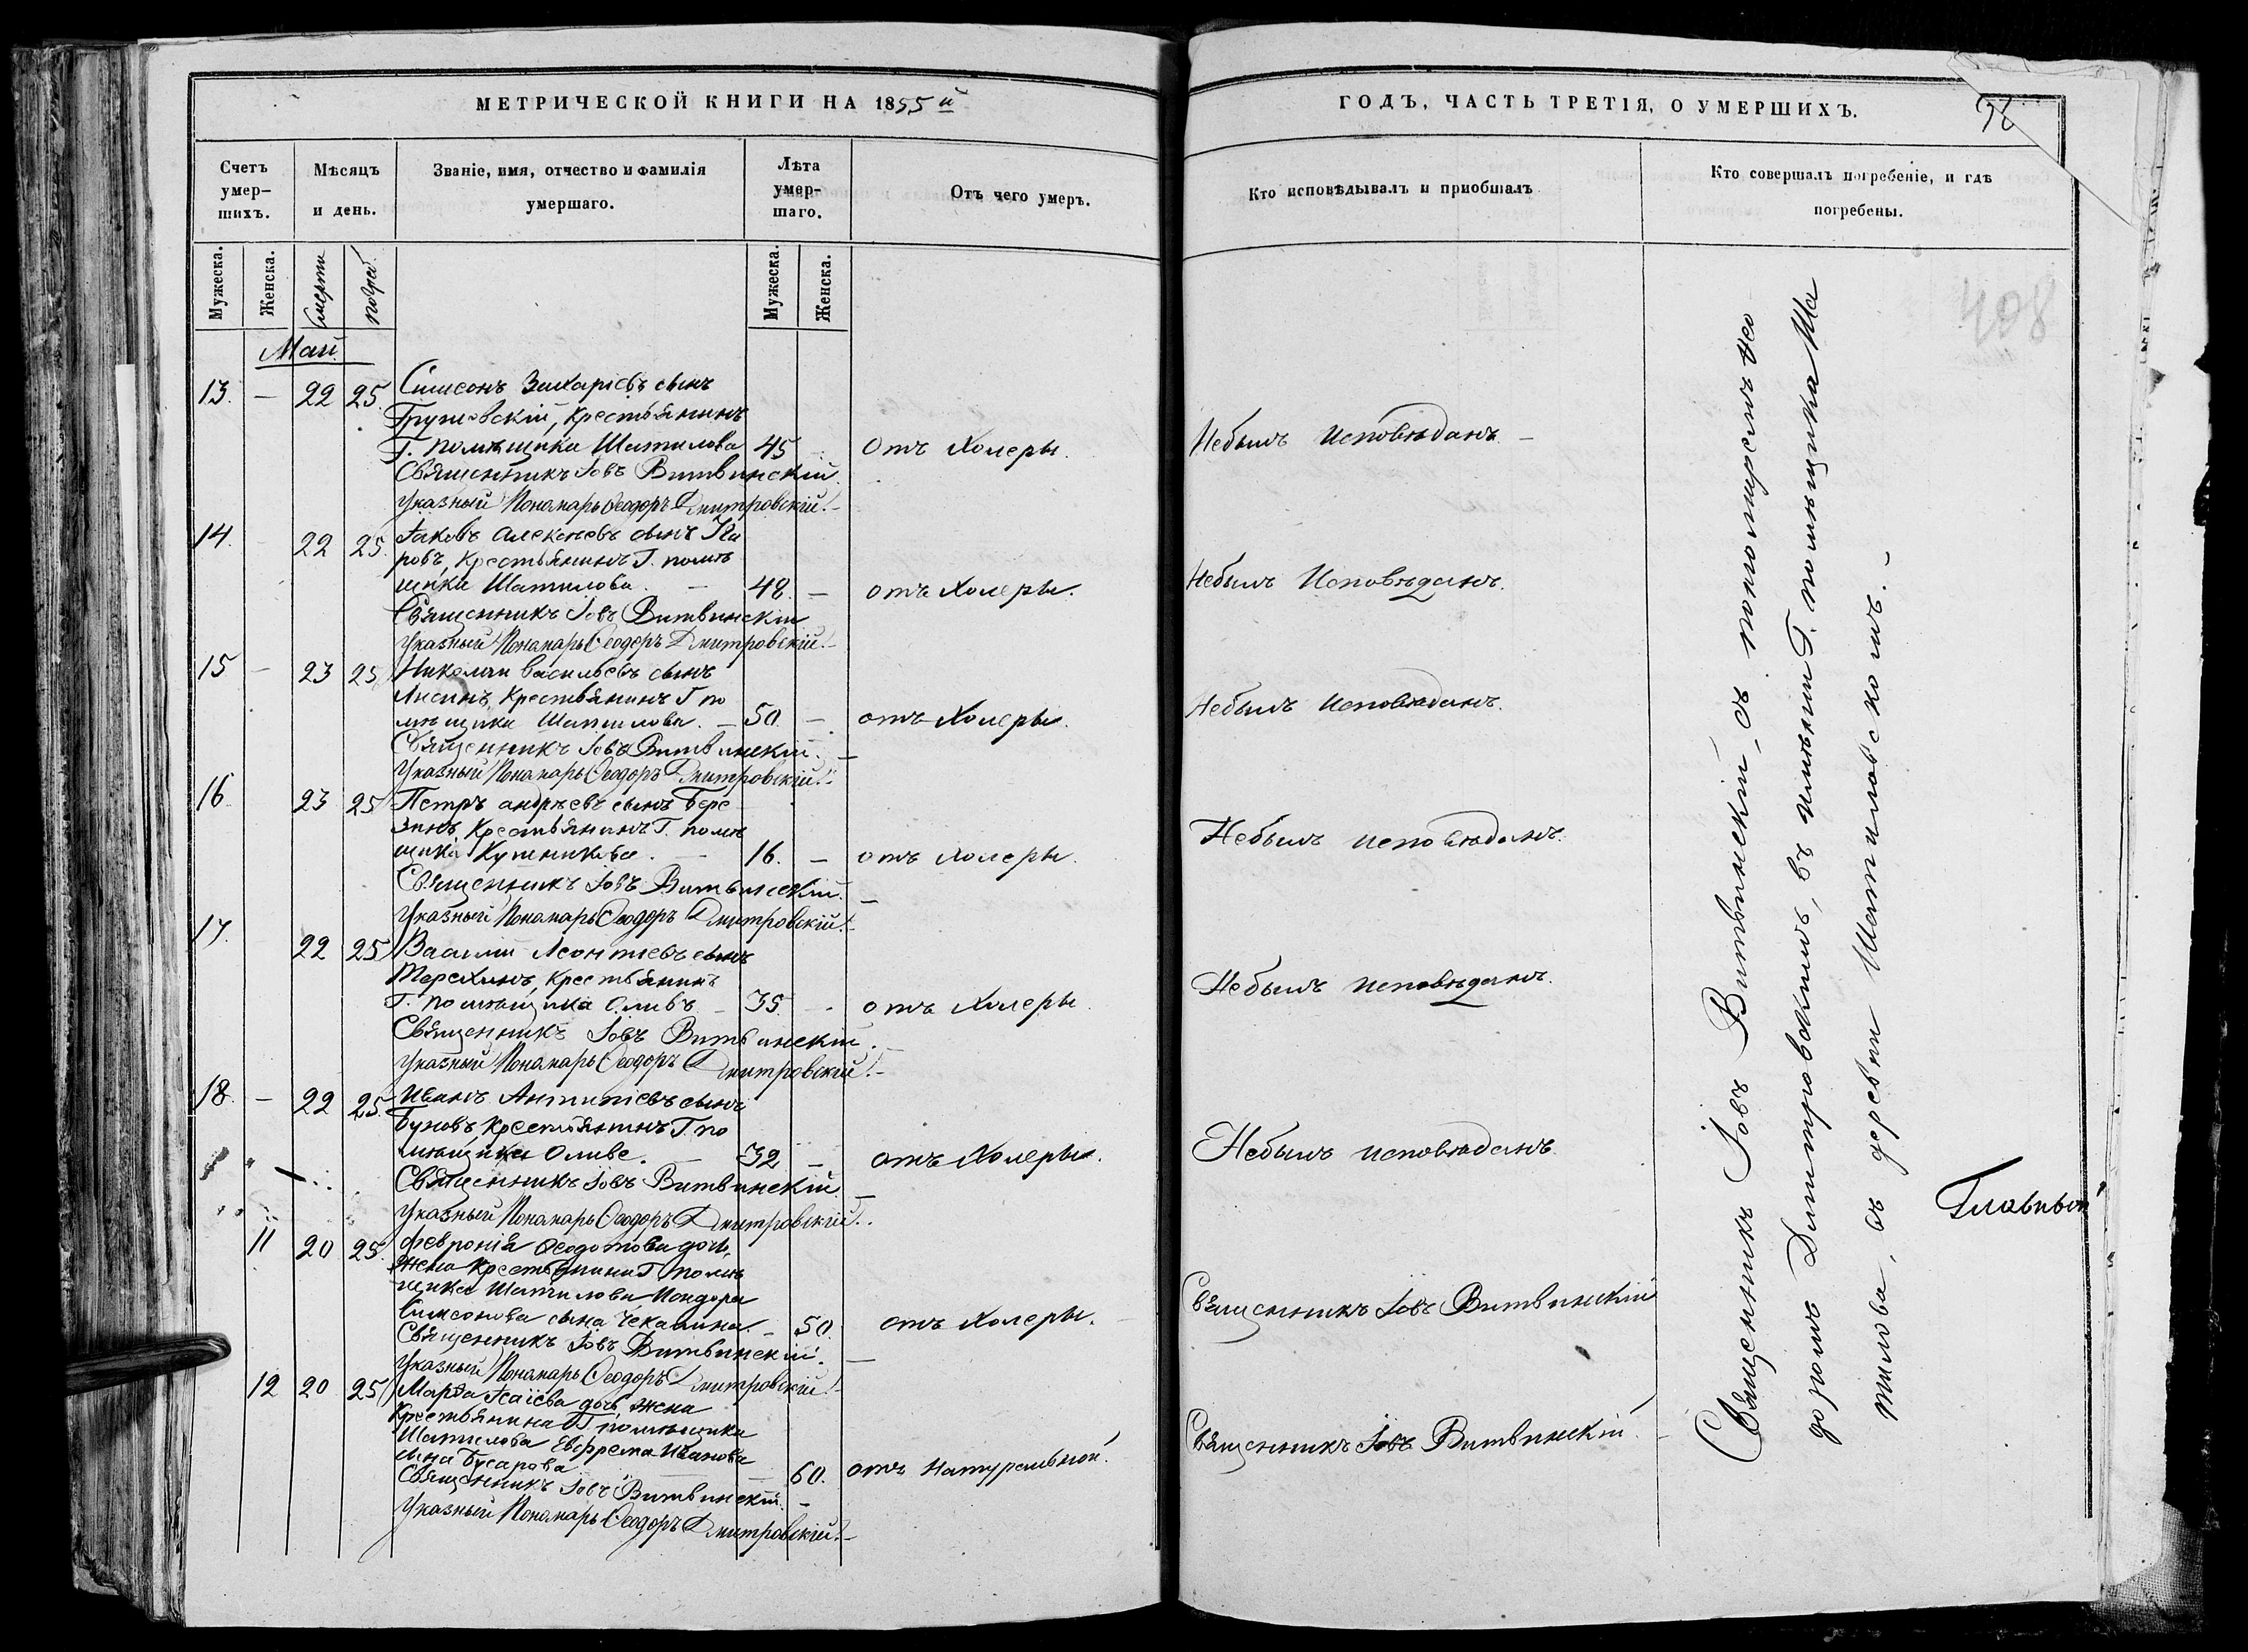 МЕТРИЧЕСКОЙ КНИГИ НА 1855 й
Счетъ умер-
шихъ.
Мѣсяцъ
и день.
Званіе, имя, отчество и фамилія
умершаго.
Лѣта
умер-
шаго.
Отъ чего умеръ.
Мужеска.
Женска.
Смерти
погреб.
Мужеска.
Женска.
Май
13. — 22 25. Симеонъ Захаріевъ сынъ
крестьянинъ
Г. помѣщика Шатилова 45 Отъ Холеры.
Священникъ Іовъ Витвинскій.
Указный Пономарь Ѳеодоръ Дмитровскій.
14. 22 25. Іаковъ Алексѣевъ сынъ
ровъ, крестьянинъ Г. помѣ
щика Шатилова. — 48. — отъ Холеры.
Священникъ Іовъ Витвинскій
Указный Пономарь Ѳеодоръ Дмитровскій.
15 — 23 25 Николай Васильевъ сынъ
Крестьянинъ Г по
мѣщика Шатилова. — 50. — отъ Холеры.
Священникъ Іовъ Витвинскій. —
Указный Пономарь Ѳеодоръ Дмитровскій.
16 23 25 Петръ андрѣевъ сынъ Бере
зинъ, Крестьянинъ Г. помѣ
щика 16. — отъ холеры.
Священникъ Іовъ Витвинскій. —
Указный Пономарь Ѳеодоръ Дмитровскій.
17. 22 25 Василій Леонтіевъ сынъ
Терехинъ, Крестьянинъ
Г. помѣщика Оливъ — 35. отъ Холеры
Священникъ Іовъ Витвинскій.
Указный Пономарь Ѳеодоръ Дмитровскій.
18. — 22 25. Иванъ Антипіевъ сынъ
Буновъ, Крестьянинъ Г. по
мѣщика Оливе. 32 — отъ Холеры.
Священникъ Іовъ Витвинскій. —
Указный Пономарь Ѳеодоръ Дмитровскій.
11 20 25. Февронія Ѳеодотова дочь,
жена Крестьянина Г помѣ
щика Шатилова
Симеонова сына Чекалина. — 50. отъ Холеры.
Священникъ Іовъ Витвинскій. —
Указный Пономарь Ѳеодоръ Дмитровскій.
12 20 25 Марѳа Исаіева дочь, жена
Крестьянина Г помѣщика
Шатилова Евфрема Иванова
сына Бусарова — 60. отъ натуральной.
Священникъ Іовъ Витвинскій. —
Указный Пономарь Ѳеодоръ Дмитровскій.
ГОДЪ, ЧАСТЬ ТРЕТІЯ, О УМЕРШИХЪ.
Кто исповѣдывалъ и пріобщалъ
Кто совершалъ погребеніе, и гдѣ
погребены.
408
Небылъ исповѣданъ —
Небылъ Исповѣданъ.
Небылъ исповѣданъ.
Небылъ исповѣданъ.
Небылъ исповѣданъ.
Небылъ исповѣданъ
Священникъ Іовъ Витвинскій
Священникъ Іовъ Витвинскій.
Священникъ Іовъ Витвинскій, съ пономаремъ Ѳео
доромъ Димитровскимъ, въ имѣніи Г. помѣщика Ша
тилова, въ деревни Шатиловской. —